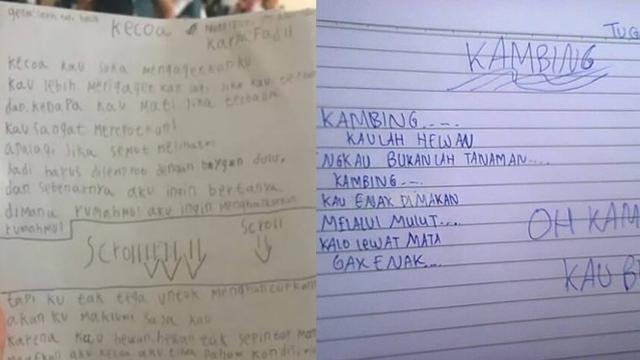 kecoa
Karya Fadil
kecoa kau suka mengagetkanku
kau lebih mengagetkan lagi jika kau
dan kenapa kau mati jika terbalik
kau sangat merepotkan!
apalagi jika semut melihatmu
jadi harus disemprot dengan baygon dulu.
dan sebenarnya aku ingin bertanya
dimana rumahmu! aku ingin
rumahmu!
Scroll
Scrollllll
tapi ku tak tega untuk menghancurkan
akan ku maklumi saja kau
karena kau hewan. hewan tak sepintar
TUG
KAMBING
KAMBING....
KAULAH HEWAN
NGKAU BUKANLAH TANAMAN....
KAMBING....
KAU ENAK DIMAKAN
MELALUI MULUT....
KALO LEWAT MATA
GAK ENAK...
OH KAM
KAU B